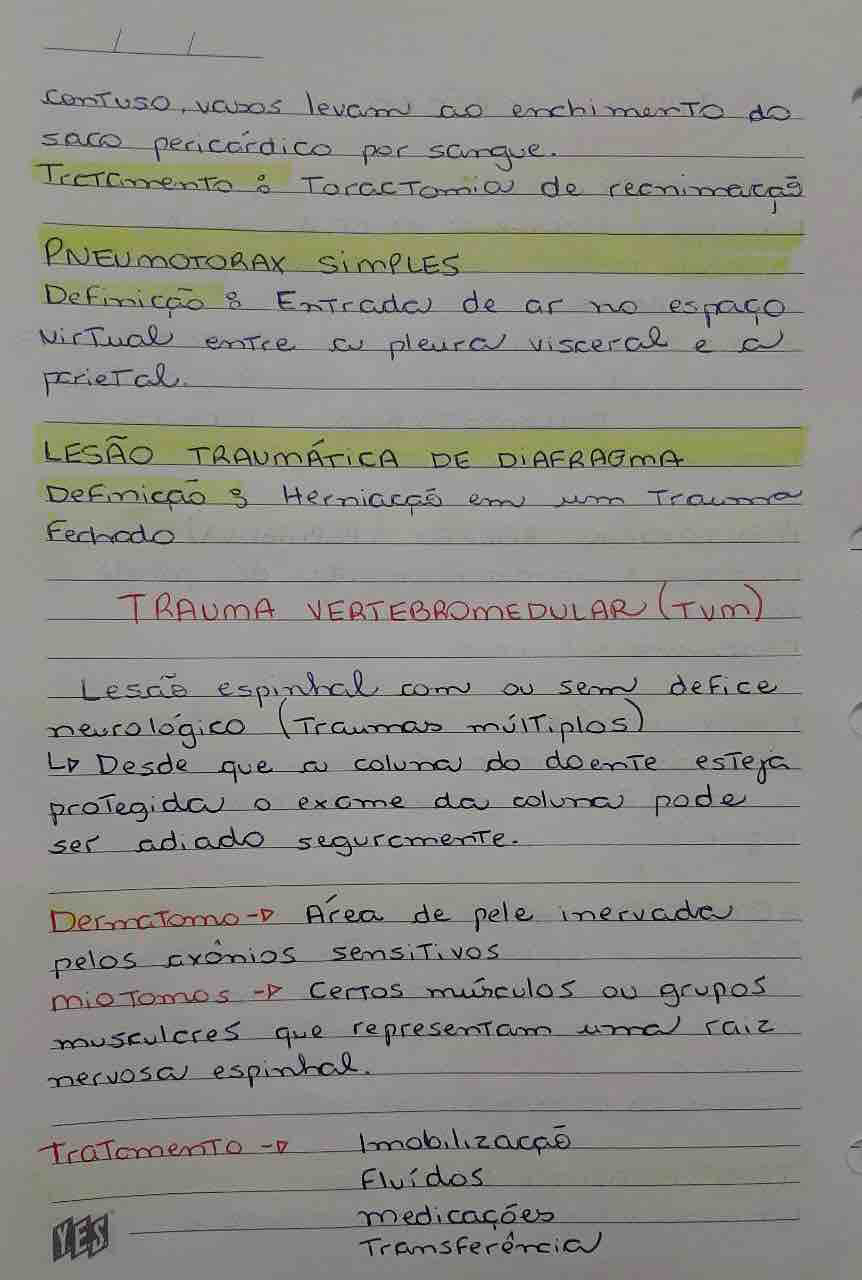 / /
contuso, vasos levam ao enchimento do
saco pericárdico por sangue.
Tratamento: Toractomia de reanimação
PNEUMOTORAX SIMPLES
Definição: Entrada de ar no espaço
virtual entre a pleura visceral e a
parietal.
LESÃO TRAUMÁTICA DE DIAFRAGMA
Definição: Herniação em um trauma
fechado
TRAUMA VERTEBROMEDULAR (TVM)
Lesão espinhal com ou sem defice
neurológico (Traumas múltiplos)
↳ Desde que a coluna do doente esteja
protegida o exame da coluna pode
ser adiado seguramente.
Dermatomo → Área de pele inervada
pelos axônios sensitivos
miotomos → Certos músculos ou grupos
musculares que representam uma raiz
nervosa espinhal.
Tratamento → Imobilização
Fluídos
medicações
Transferência
YES